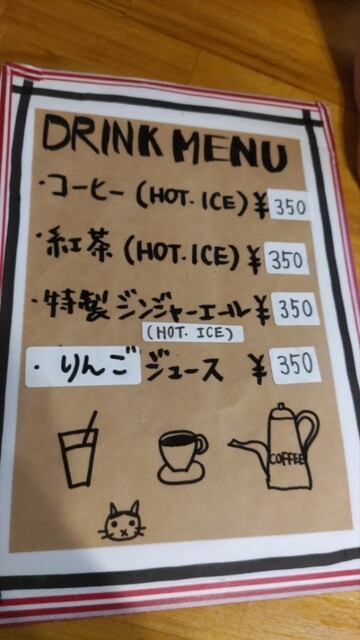 DRINK MENU
・コーヒー (HOT. ICE) ¥350
・紅茶 (HOT. ICE) ¥350
・特製 ジンジャーエール ¥350
(HOT. ICE)
・りんごジュース ¥350
COFFEE